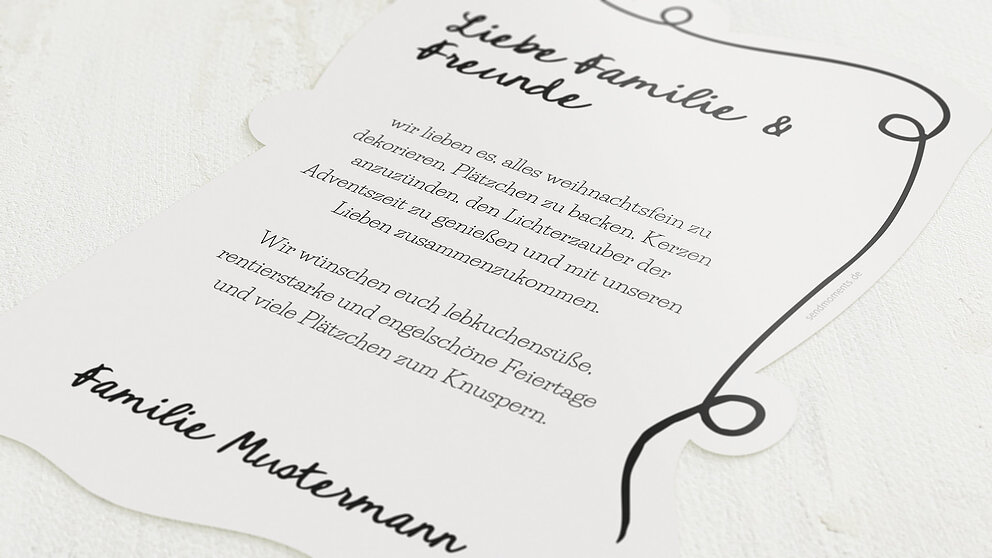 Liebe Familie &
Freunde
wir lieben es, alles weihnachtsfein zu
dekorieren, Plätzchen zu backen, Kerzen
anzuzünden, den Lichterzauber der
Adventszeit zu genießen und mit unseren
Lieben zusammenzukommen.
Wir wünschen euch lebkuchensüße,
rentierstarke und engelschöne Feiertage
und viele Plätzchen zum Knuspern.
Familie Mustermann
sendmoments.de